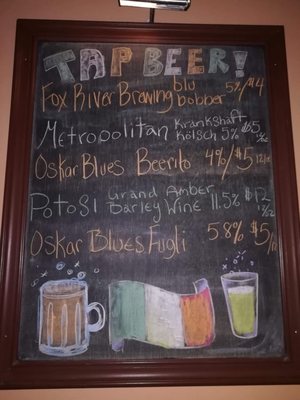 TAP BEER!
Fox River Brewing blu bobber 5%/$4
Metropolitan Krankshaft Kölsch 5% $5
Oskar Blues Beerito 4%/$5 12oz
Potosi Grand Amber Barley Wine 11.5% $12
Oskar Blues Fugli 5.8% $5